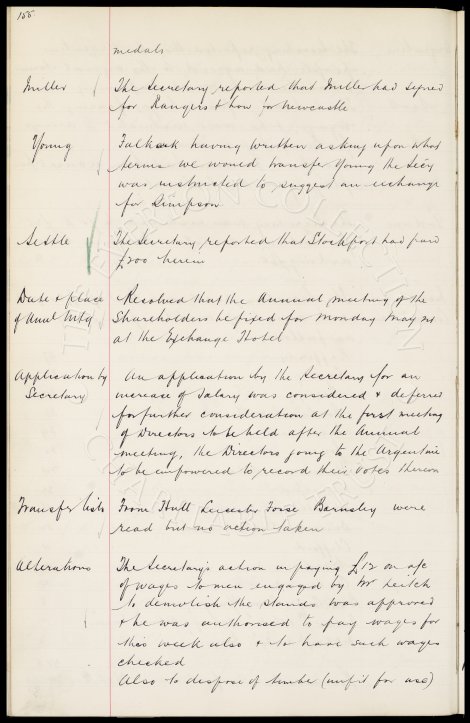 155.
medals
Miller The Secretary reported that Miller had signed
for Rangers & how for Newcastle
Young Falkirk having written asking upon what
terms we would transfer Young the Secy
was instructed to suggest an exchange
for Simpson
Settle The Secretary reported that Stockport had paid
£200 herein
Date & place Resolved that the Annual meeting of the
of Anul Mtg Shareholders be fixed for Monday May
at the Exchange Hotel
Application by An application by the Secretary for an
Secretary increase of salary was considered & deferred
for further consideration at the first meeting
of Directors to be held after the Annual
meeting, the Directors going to the Argentine
to be empowered to record their votes thereon
Transfer lists From Hull Leicester Fosse Barnsley were
read but no action taken
Alterations The Secretary's action in paying £12 on a/c
of wages to men engaged by Mr Leitch
to demolish the stands was approved
& he was authorised to pay wages for
this week also & to have such wages
checked
Also to dispose of timber (unfit for use)
EVERTON COLLECTION
CHARITABLE TRUST